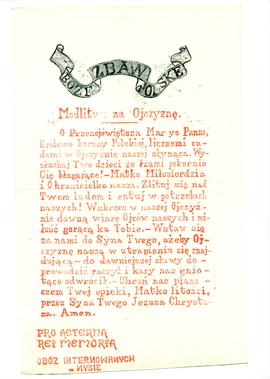 BOŻE ZBAW POLSKĘ
Modlitwa za Ojczyznę.
O Przenajświętsza Maryo Panno,
Królowo korony Polskiej, licznemi cu-
dami w Ojczyźnie naszej słynąca. Wy-
słuchaj Twe dzieci ze łzami pokornie
Cię błagające! – Matko Miłosierdzia
i Ochranicielko nasza. Zlituj się nad
Twem ludem i ratuj w potrzebach
naszych! Wskrzesz w naszej Ojczyź-
nie dawną wiarę Ojców naszych i mi-
łość gorącą ku Tobie. – Wstaw się
za nami do Syna Twego, ażeby Oj-
czyznę naszą w utrapieniu się znaj-
dującą – do dawniejszej sławy do-
prowadzić raczył i kary nas gnio-
tące odwrócił. – Chroń nas płasz-
czem Twej opieki, Matko litości,
przez Syna Twego Jezusa Chrystu-
sa. Amen.
PRO AETERNA
REI MEMORIA
OBÓZ INTERNOWANYCH
w NYSIE